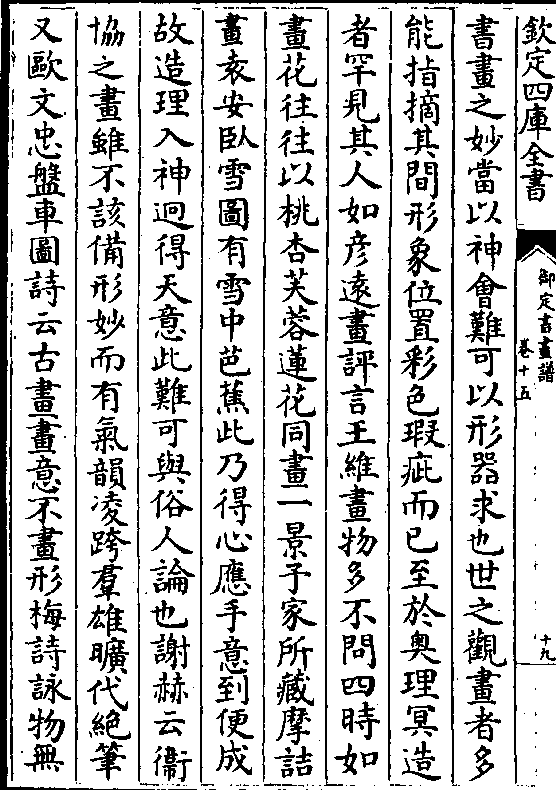 欽定四庫全書
御定書畫譜
卷十五
十九
書畫之妙當以神會難可以形器求也世之觀畫者多
能指摘其間形象位置彩色瑕疵而已至於奥理冥造
者罕見其人如彦逺畫評言王維畫物多不問四時如
畫花往往以桃杏芙蓉蓮花同畫一景予家所藏摩詰
畫袁安臥雪圖有雪中芭蕉此乃得心應手意到便成
故造理入神迥得天意此難可與俗人論也謝赫云衞
協之畫雖不該備形妙而有氣韻凌跨羣雄曠代絶筆
又歐文忠盤車圖詩云古畫畫意不畫形梅詩詠物無